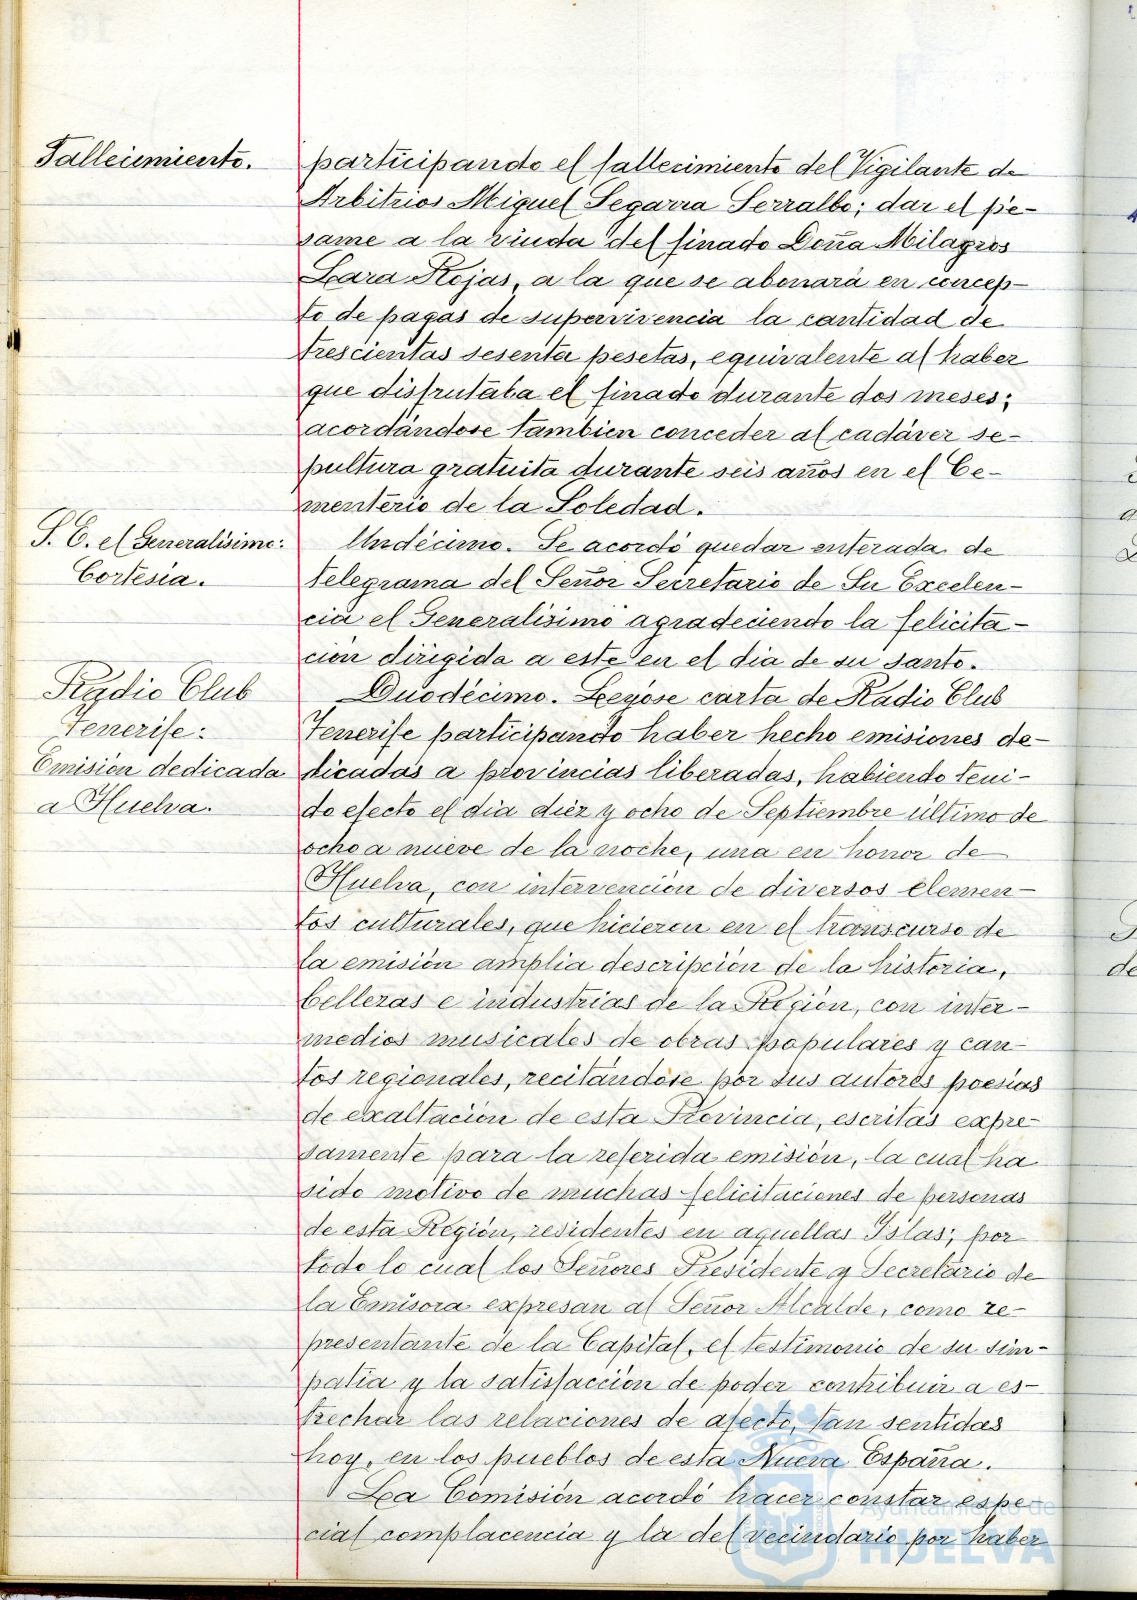 Fallecimiento.
participando el fallecimiento del Vigilante de
Arbitrios Miguel Segarra Serralbo; dar el pé-
same a la viuda del finado Doña Milagros
Lara Rojas, a la que se abonará en concep-
to de pagas de supervivencia la cantidad de
trescientas sesenta pesetas, equivalente al haber
que disfrutaba el finado durante dos meses;
acordándose tambien conceder al cadáver se-
pultura gratuita durante seis años en el Ce-
menterio de la Soledad.
S. E. el Generalísimo:
Cortesía.
Undécimo. Se acordó quedar enterada de
telegrama del Señor Secretario de Su Excelen-
cia el Generalísimo agradeciendo la felicita-
ción dirigida a este en el día de su santo.
Radio Club
Tenerife:
Emisión dedicada
a Huelva.
Duodécimo. Leyóse carta de Radio Club
Tenerife participando haber hecho emisiones de-
dicadas a provincias liberadas, habiendo teni-
do efecto el día diez y ocho de Septiembre último de
ocho a nueve de la noche, una en honor de
Huelva, con intervención de diversos elemen-
tos culturales, que hicieron en el transcurso de
la emisión amplia descripción de la historia,
bellezas e industrias de la Región, con inter-
medios musicales de obras populares y can-
tos regionales, recitándose por sus autores poesías
de exaltación de esta Provincia, escritas expre-
samente para la referida emisión, la cual ha
sido motivo de muchas felicitaciones de personas
de esta Región, residentes en aquellas Islas; por
todo lo cual los Señores Presidente y Secretario de
la Emisora expresan al Señor Alcalde, como re-
presentante de la Capital, el testimonio de su sim-
patía y la satisfacción de poder contribuir a es-
trechar las relaciones de afecto, tan sentidas
hoy, en los pueblos de esta Nueva España.
La Comisión acordó hacer constar espe-
cial complacencia y la del vecindario por haber
Ayuntamiento de
HUELVA